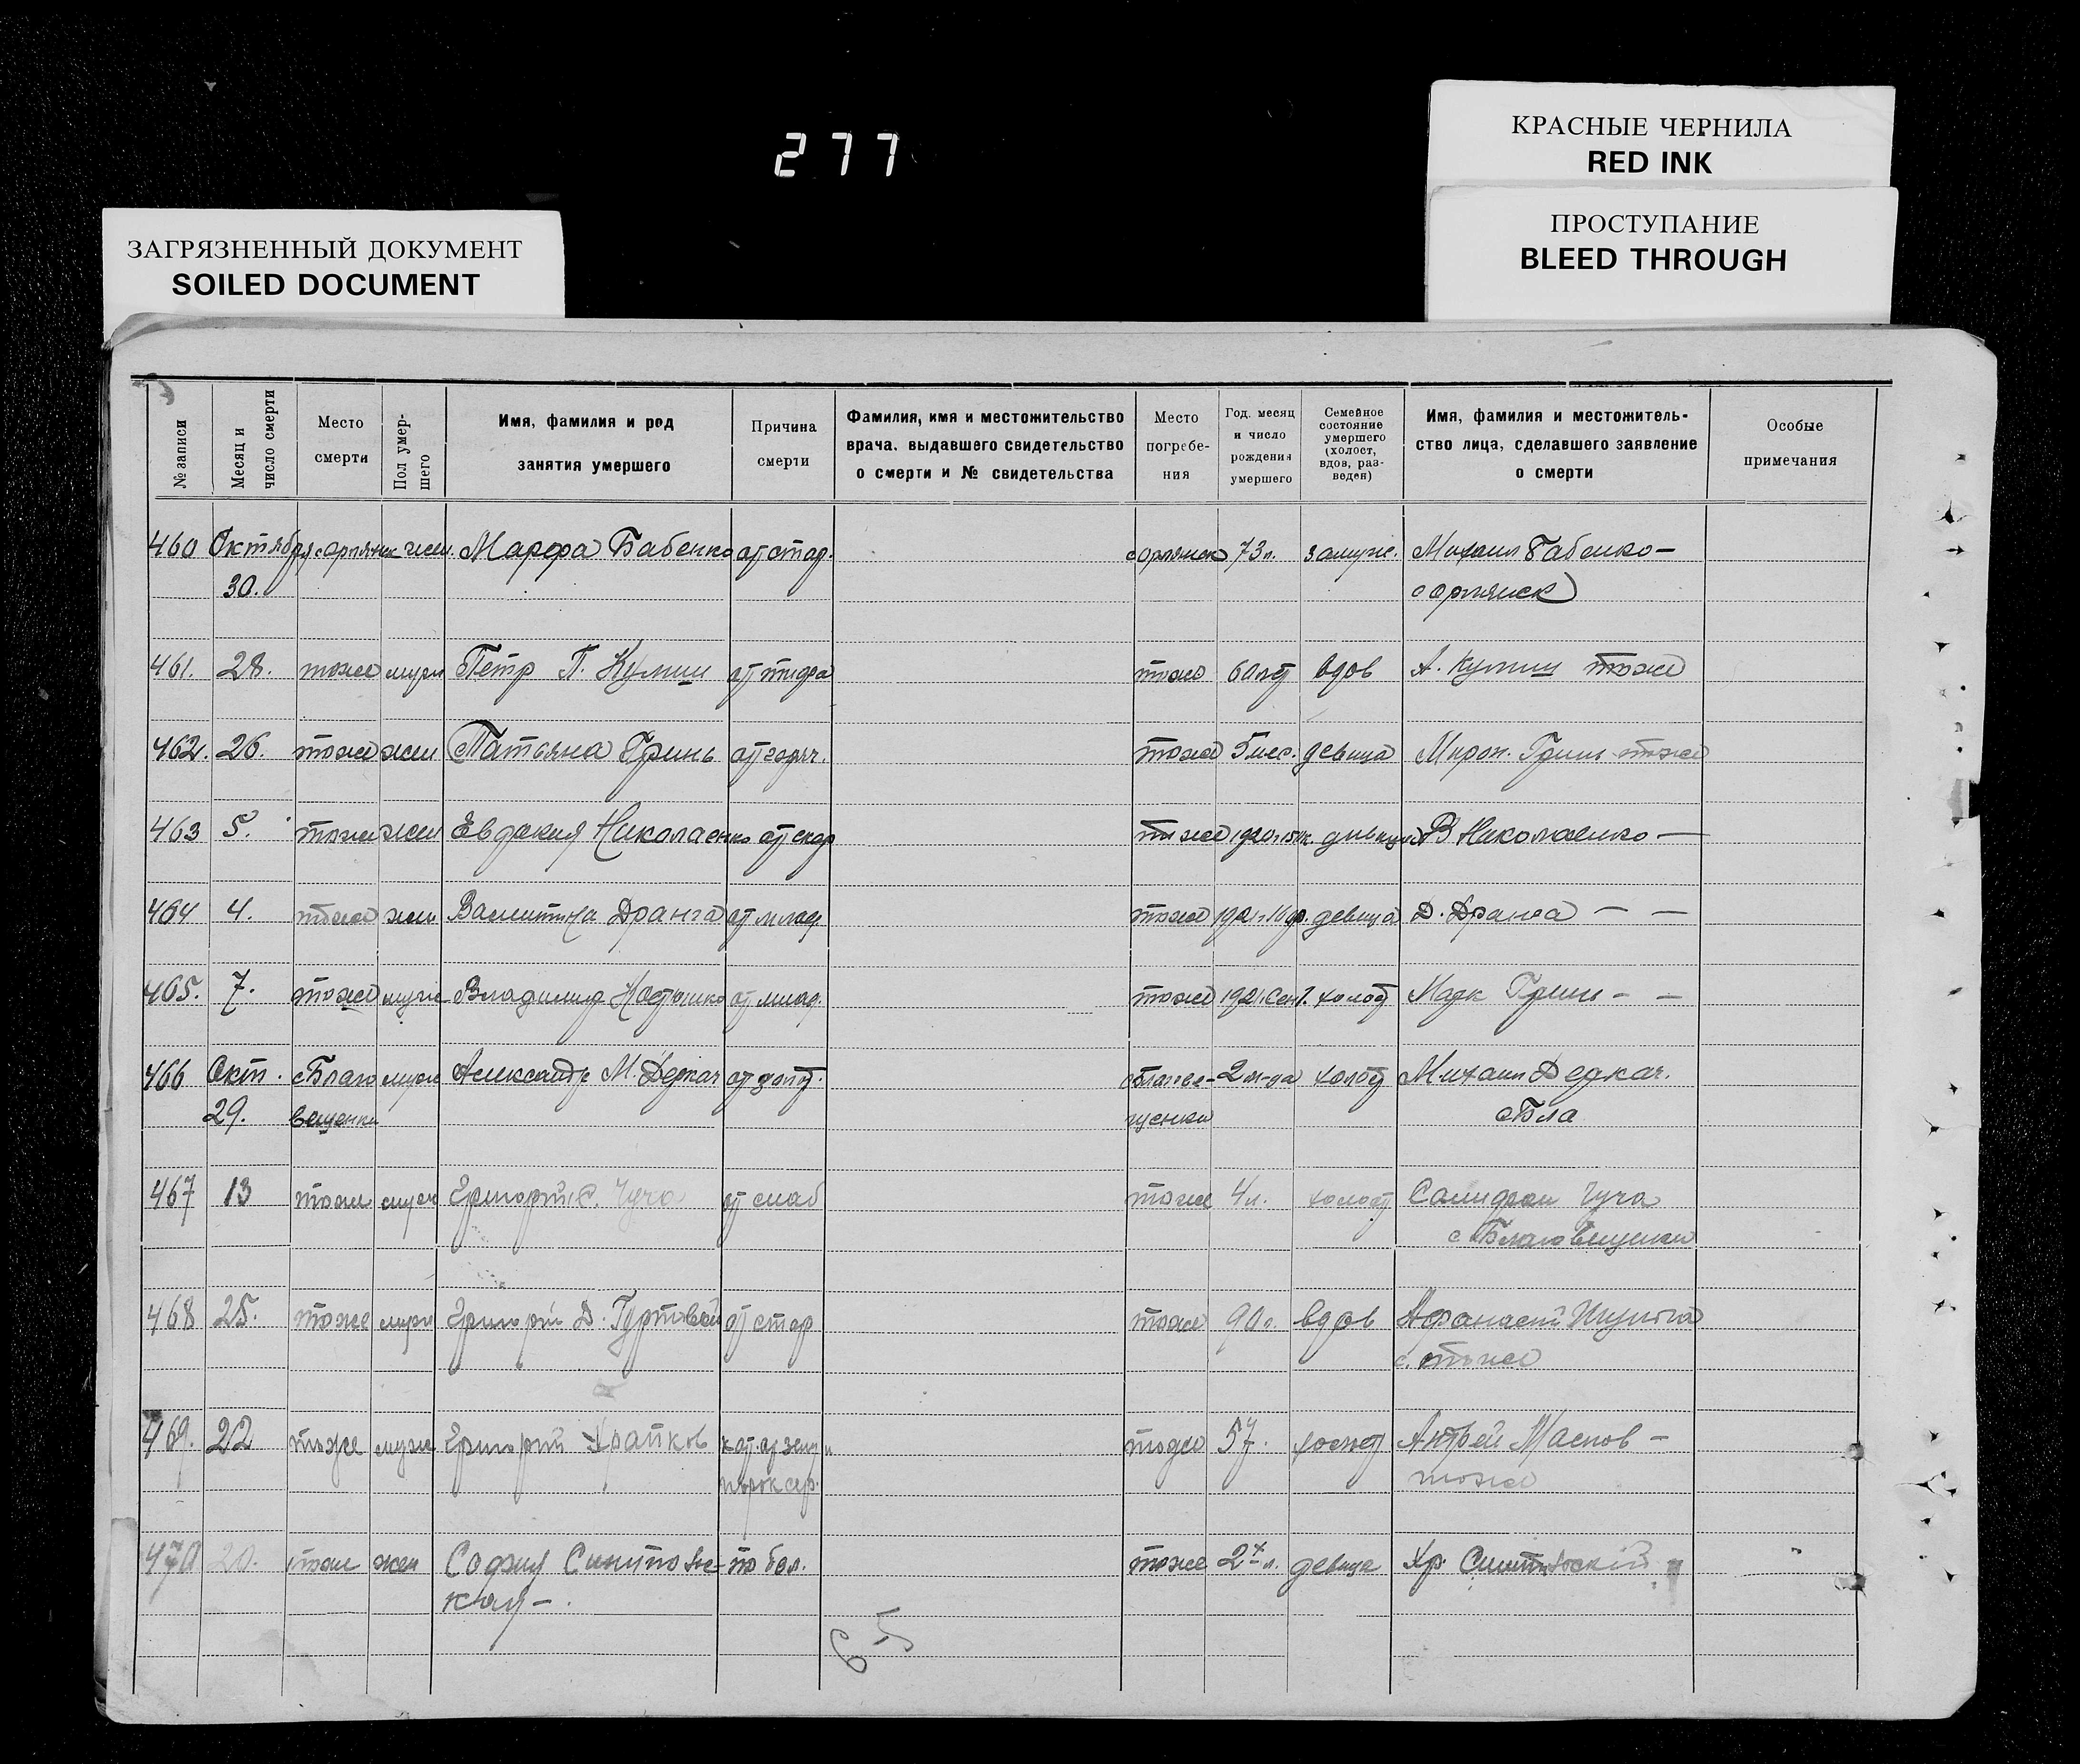 277
КРАСНЫЕ ЧЕРНИЛА
RED INK
ПРОСТУПАНИЕ
BLEED THROUGH
ЗАГРЯЗНЕННЫЙ ДОКУМЕНТ
SOILED DOCUMENT
№ записи
Месяц и число смерти
Место смерти
Пол умершего
Имя, фамилия и род занятия умершего
Причина смерти
Фамилия, имя и местожительство врача, выдавшего свидетельство о смерти и № свидетельства
Место погребения
Год, месяц и число рождения умершего
Семейное состояние умершего (холост, вдов, разведен)
Имя, фамилия и местожительство лица, сделавшего заявление о смерти
Особые примечания
460 Октября жен. Марфа Бабенко от стар. 73 л. замуж. Михаил Бабенко –
30.
461. 28. тоже муж Петр П. Кулиш от тифа тоже 60 лет вдов А. Кулиш тоже
462. 26. тоже жен Татьяна Гринь от горяч. тоже 5 мес. девица Мирон. Гринь тоже
463 5. тоже жен Евдокия Николаенко от скар тоже 1920г. девица В Николаенко —
464 4. тоже жен Валентина Дранга от млад. тоже 1921г. девица Д. Дранга — —
465. 7. тоже муж Владимир от млад. тоже 1921. Сент. холост Марк Гринь – –
466 Окт. с Благо муж Александр М. Деркач от холост Михаил Деркач.
29. вещенки щенки с Бла
467 13 тоже муж Григорий С. Чуча от слаб тоже 4 л. холост Чуча
с Благовещенки
468 25. тоже муж Григорий Д. Гуртовой от стар тоже 90 л. вдов Афанасий Шульга
с. тоже
469. 22 тоже муж Григорий тоже 57. холост Маслов –
тоже
470 20. тоже жен София тоже девица Хр.
кая –.
65